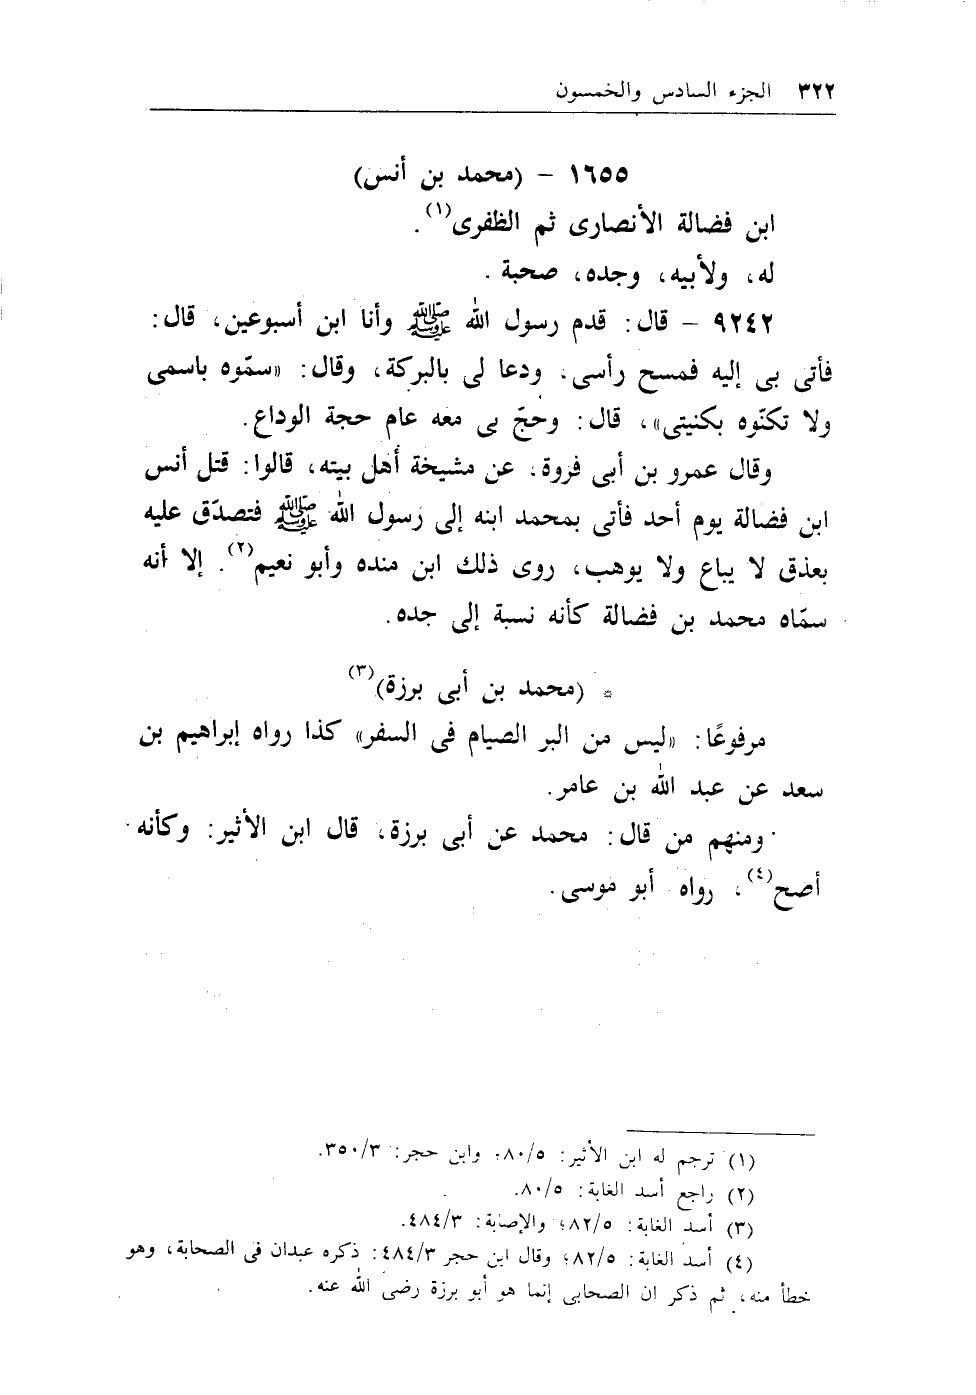 ٣٢٢ الجزء السادس والخمسون
١٦٥٥ – (محمد بن أنس)
ابن فضالة الأنصارى ثم الظفرى(١).
له، ولأبيه، وجده، صحبة.
٩٢٤٢ – قال: قدم رسول الله ﷺ وأنا ابن أسبوعين، قال:
فأتى بى إليه فمسح رأسى، ودعا لى بالبركة، وقال: «سمّوه باسمى
ولا تكنّوه بكنيتى»، قال: وحَجّ بى معه عام حجة الوداع.
وقال عمرو بن أبى فروة، عن مشيخة أهل بيته، قالوا: قتل أنس
ابن فضالة يوم أحد فأتى بمحمد ابنه إلى رسول الله ﷺ فتصدّق عليه
بعذق لا يباع ولا يوهب، روى ذلك ابن منده وأبو نعيم(٢). إلا أنه
سمّاه محمد بن فضالة كأنه نسبة إلى جده.
* (محمد بن أبى برزة)(٣)
مرفوعًا: «ليس من البر الصيام فى السفر» كذا رواه إبراهيم بن
سعد عن عبد الله بن عامر.
ومنهم من قال: محمد عن أبى برزة، قال ابن الأثير: وكأنه
أصح(٤)، رواه أبو موسى.
(١) ترجم له ابن الأثير: ٨٠/٥، وابن حجر: ٣٥٠/٣.
(٢) راجع أسد الغابة: ٨٠/٥.
(٣) أسد الغابة: ٨٢/٥؛ والإصابة: ٤٨٤/٣.
(٤) أسد الغابة: ٨٢/٥؛ وقال ابن حجر ٤٨٤/٣: ذكره عبدان فى الصحابة، وهو
خطأ منه، ثم ذكر ان الصحابى إنما هو أبو برزة رضى الله عنه.